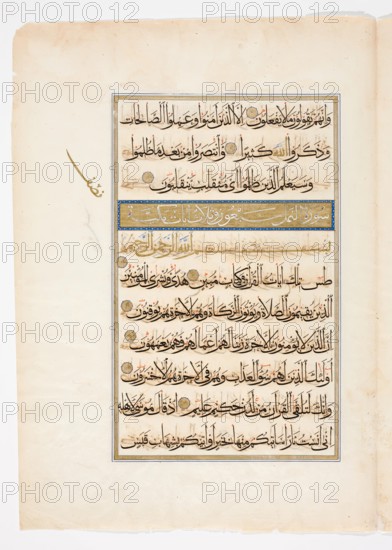 وانهم يقولون ما لا يفعلون الا الذين آمنوا وعملوا الصالحات
وذكروا الله كثيرا وانتصروا من بعد ما ظلموا
وسيعلم الذين ظلموا اى منقلب ينقلبون
سورة النمل
بسم الله الرحمن الرحيم
طس تلك آيات القرآن وكتاب مبين هدى وبشرى للمؤمنين
الذين يقيمون الصلاة ويؤتون الزكاة وهم بالآخرة هم يوقنون
ان الذين لا يؤمنون بالآخرة زينا لهم اعمالهم فهم يعمهون
اولئك الذين لهم سوء العذاب وهم فى الآخرة هم الاخسرون
وانك لتلقى القرآن من لدن حكيم عليم اذ قال موسى لاهله
انى آنست نارا سآتيكم منها بخبر او آتيكم بشهاب قبس
PHOTO 12